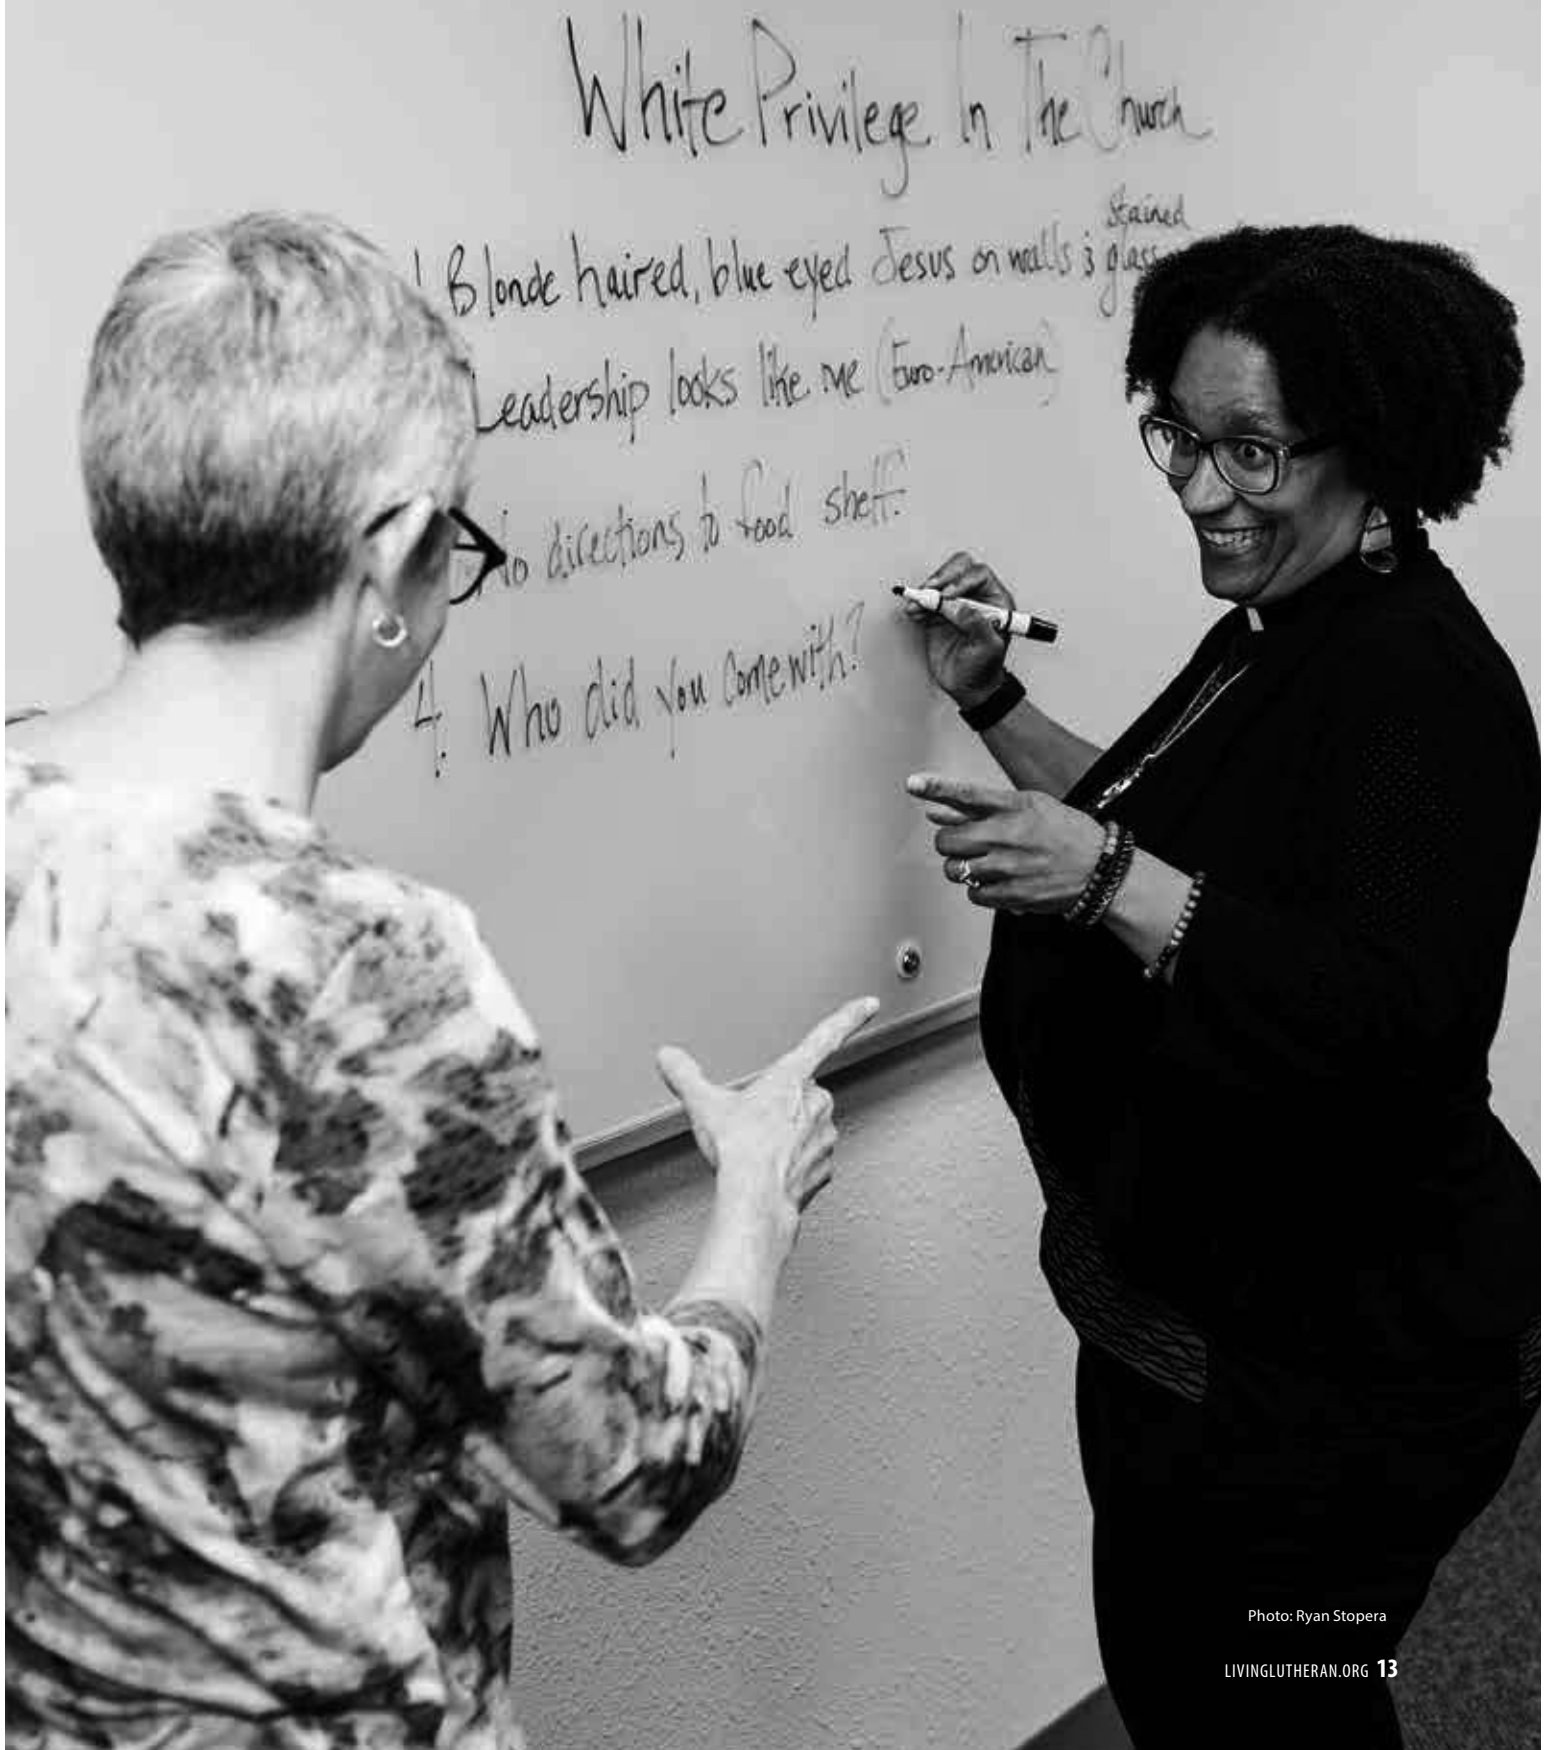 White Privilege In The Church
1. Blonde haired, blue eyed Jesus on walls & stained glass
Leadership looks like me (Euro-American)
No directions to food shelf.
4. Who did you come with?
Photo: Ryan Stopera
LIVINGLUTHERAN.ORG 13